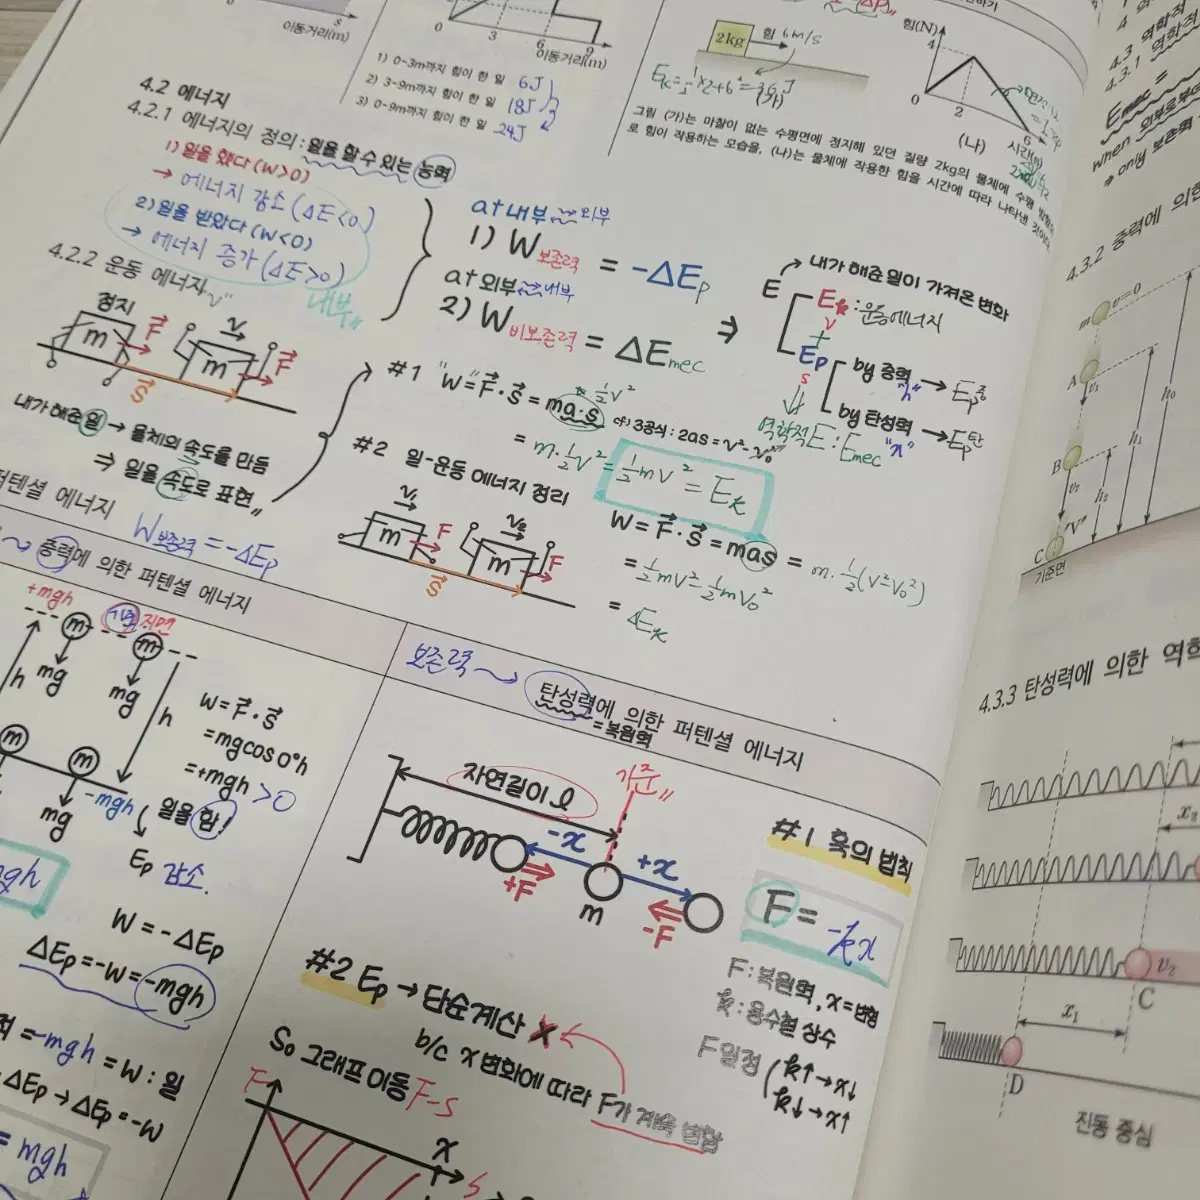 이동거리(m)
0
3
6
9
이동거리(m)
1) 0~3m까지 힘이 한 일 6J
2) 3~9m까지 힘이 한 일 18J
3) 0~9m까지 힘이 한 일 24J
2kg
힘 6m/s
(가)
힘(N)
4
0
2
6
시간(s)
(나)
그림 (가)는 마찰이 없는 수평면에 정지해 있던 질량 2kg의 물체에 수평
로 힘이 작용하는 모습을, (나)는 물체에 작용한 힘을 시간에 따라 나타낸 것이다
4.2 에너지
4.2.1 에너지의 정의 : 일을 할 수 있는 능력
1) 일을 했다 (W>0)
→ 에너지 감소 (ΔE<0)
2) 일을 받았다 (W<0)
→ 에너지 증가 (ΔE>0)
내부
at 내부 외부
1) W보존력 = -ΔEp
at 외부 내부
2) W비보존력 = ΔEmec
⇒
내가 해준 일이 가져온 변화
E
Ek : 운동에너지
v
+
Ep
s
by 중력 → Ep중
"h"
by 탄성력 → Ep탄
"x"
역학적E : Emec
4.2.2 운동 에너지 "v"
정지
m F
v
m F
S
내가 해준 일 → 물체의 속도를 만듦
⇒ 일을 속도로 표현
#1 "W" = F·S = ma·s
½v²
cf) 3공식 : 2as = v²-v₀²
= m·½v² = ½mv² = Ek
#2 일-운동 에너지 정리
v₁
m F
v₂
m F
S
W = F·S = mas = m·½(v²-v₀²)
= ½mv²-½mv₀²
= ΔEk
퍼텐셜 에너지 W보존력 = -ΔEp
중력에 의한 퍼텐셜 에너지
+mgh
기준 지면
m
m
mg
mg
h
h
m
m
mg
mg
-mgh
W = F·S
= mgcos0°h
= +mgh > 0
일을 함!
Ep 감소.
W = -ΔEp
ΔEp = -W = -mgh
= -mgh = W : 일
ΔEp → ΔEp = -W
= mgh
보존력
탄성력에 의한 퍼텐셜 에너지
= 복원력
자연길이 l
기준
-x
+x
+F
m
-F
#1 훅의 법칙
F = -kx
F : 복원력, x = 변형
k : 용수철 상수
F 일정 ( k↑ → x↓
k↓ → x↑
#2 Ep → 단순계산 X
b/c x 변화에 따라 F가 계속 변함
So 그래프 이동 F-S
F
x
S
4.3 역학적
4.3.1 역학적
Emec =
when 외부로부터
⇒ only 보존력
4.3.2 중력에 의한
m
v=0
A
v₁
h₀
h₁
B
v₂
h₂
C
"V"
기준면
4.3.3 탄성력에 의한 역학
x₂
v₂
C
x₁
D
진동 중심